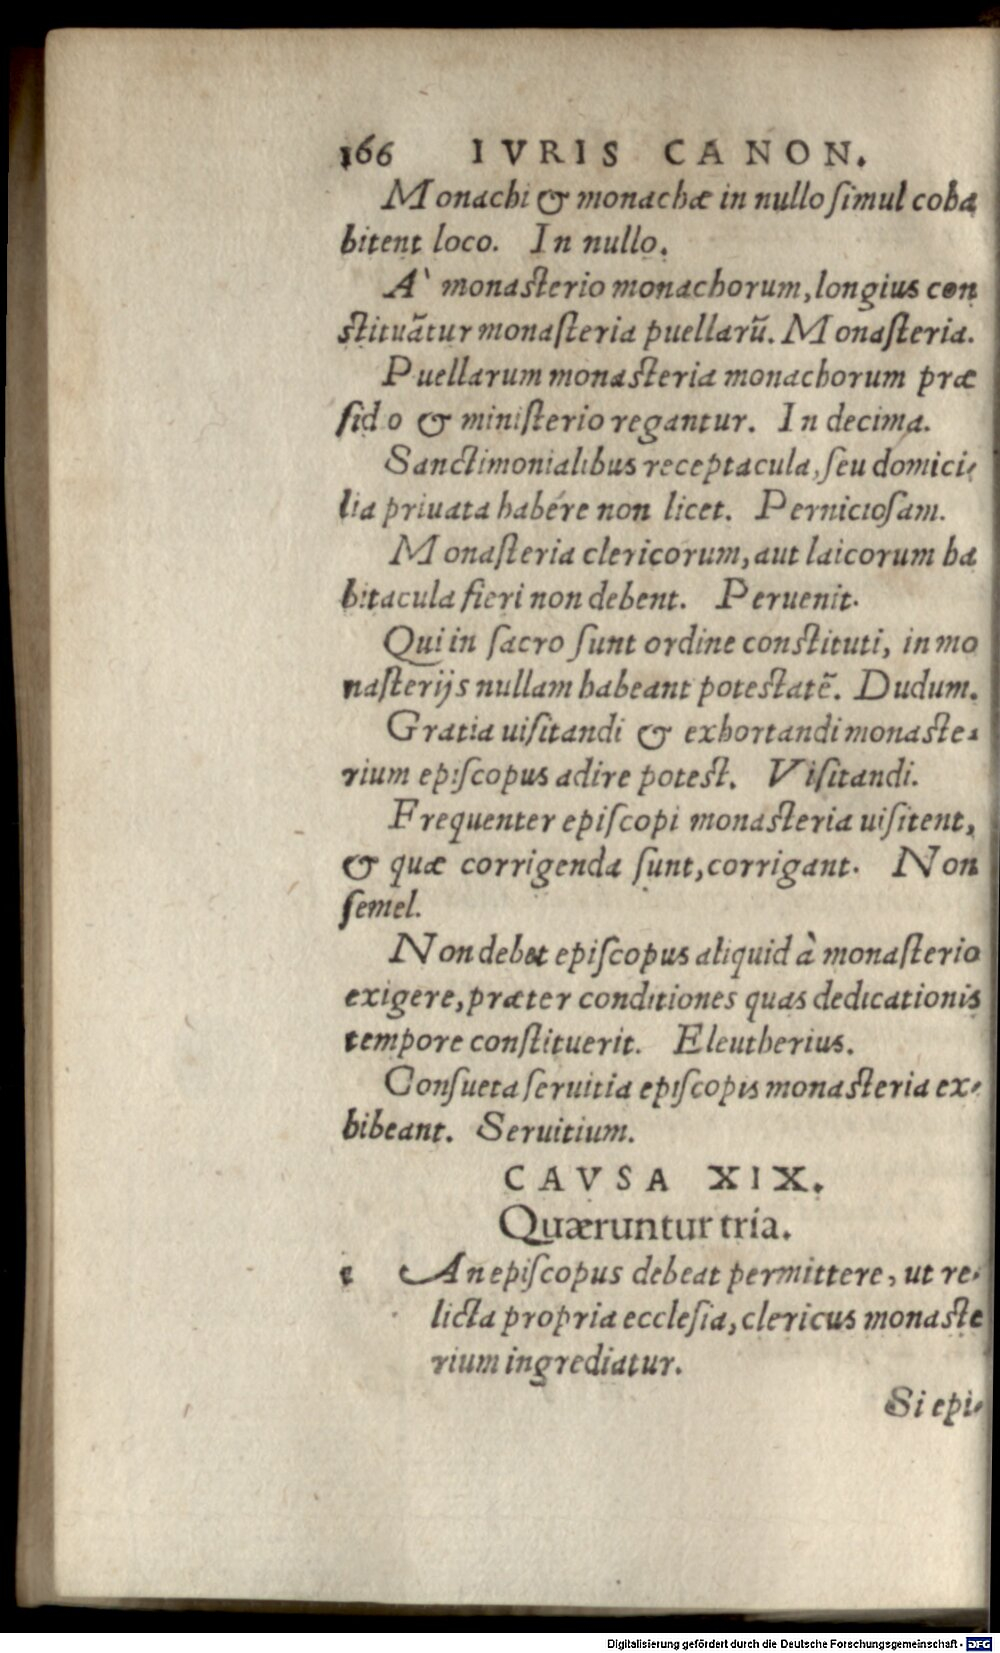 166 IVRIS CANON.
Monachi & monachæ in nullo simul coha
bitent loco. In nullo.
A` monasterio monachorum, longius con
stituãtur monasteria puellarũ. Monasteria.
Puellarum monasteria monachorum præ
sid o & ministerio regantur. In decima.
Sanctimonialibus receptacula, seu domici-
lia priuata habére non licet. Perniciosam.
Monasteria clericorum, aut laicorum ha
bitacula fieri non debent. Peruenit.
Qui in sacro sunt ordine constituti, in mo
nasterijs nullam habeant potestatẽ. Dudum.
Gratia uisitandi & exhortandi monaste-
rium episcopus adire potest. Visitandi.
Frequenter episcopi monasteria uisitent,
& quæ corrigenda sunt, corrigant. Non
semel.
Non debet episcopus aliquid à monasterio
exigere, præter conditiones quas dedicationis
tempore constituerit. Eleutherius.
Consueta seruitia episcopis monasteria ex-
hibeant. Seruitium.
CAVSA XIX.
Quæruntur tria.
1 An episcopus debeat permittere, ut re-
licta propria ecclesia, clericus monaste
rium ingrediatur.
Si epi-
Digitalisierung gefördert durch die Deutsche Forschungsgemeinschaft - DFG